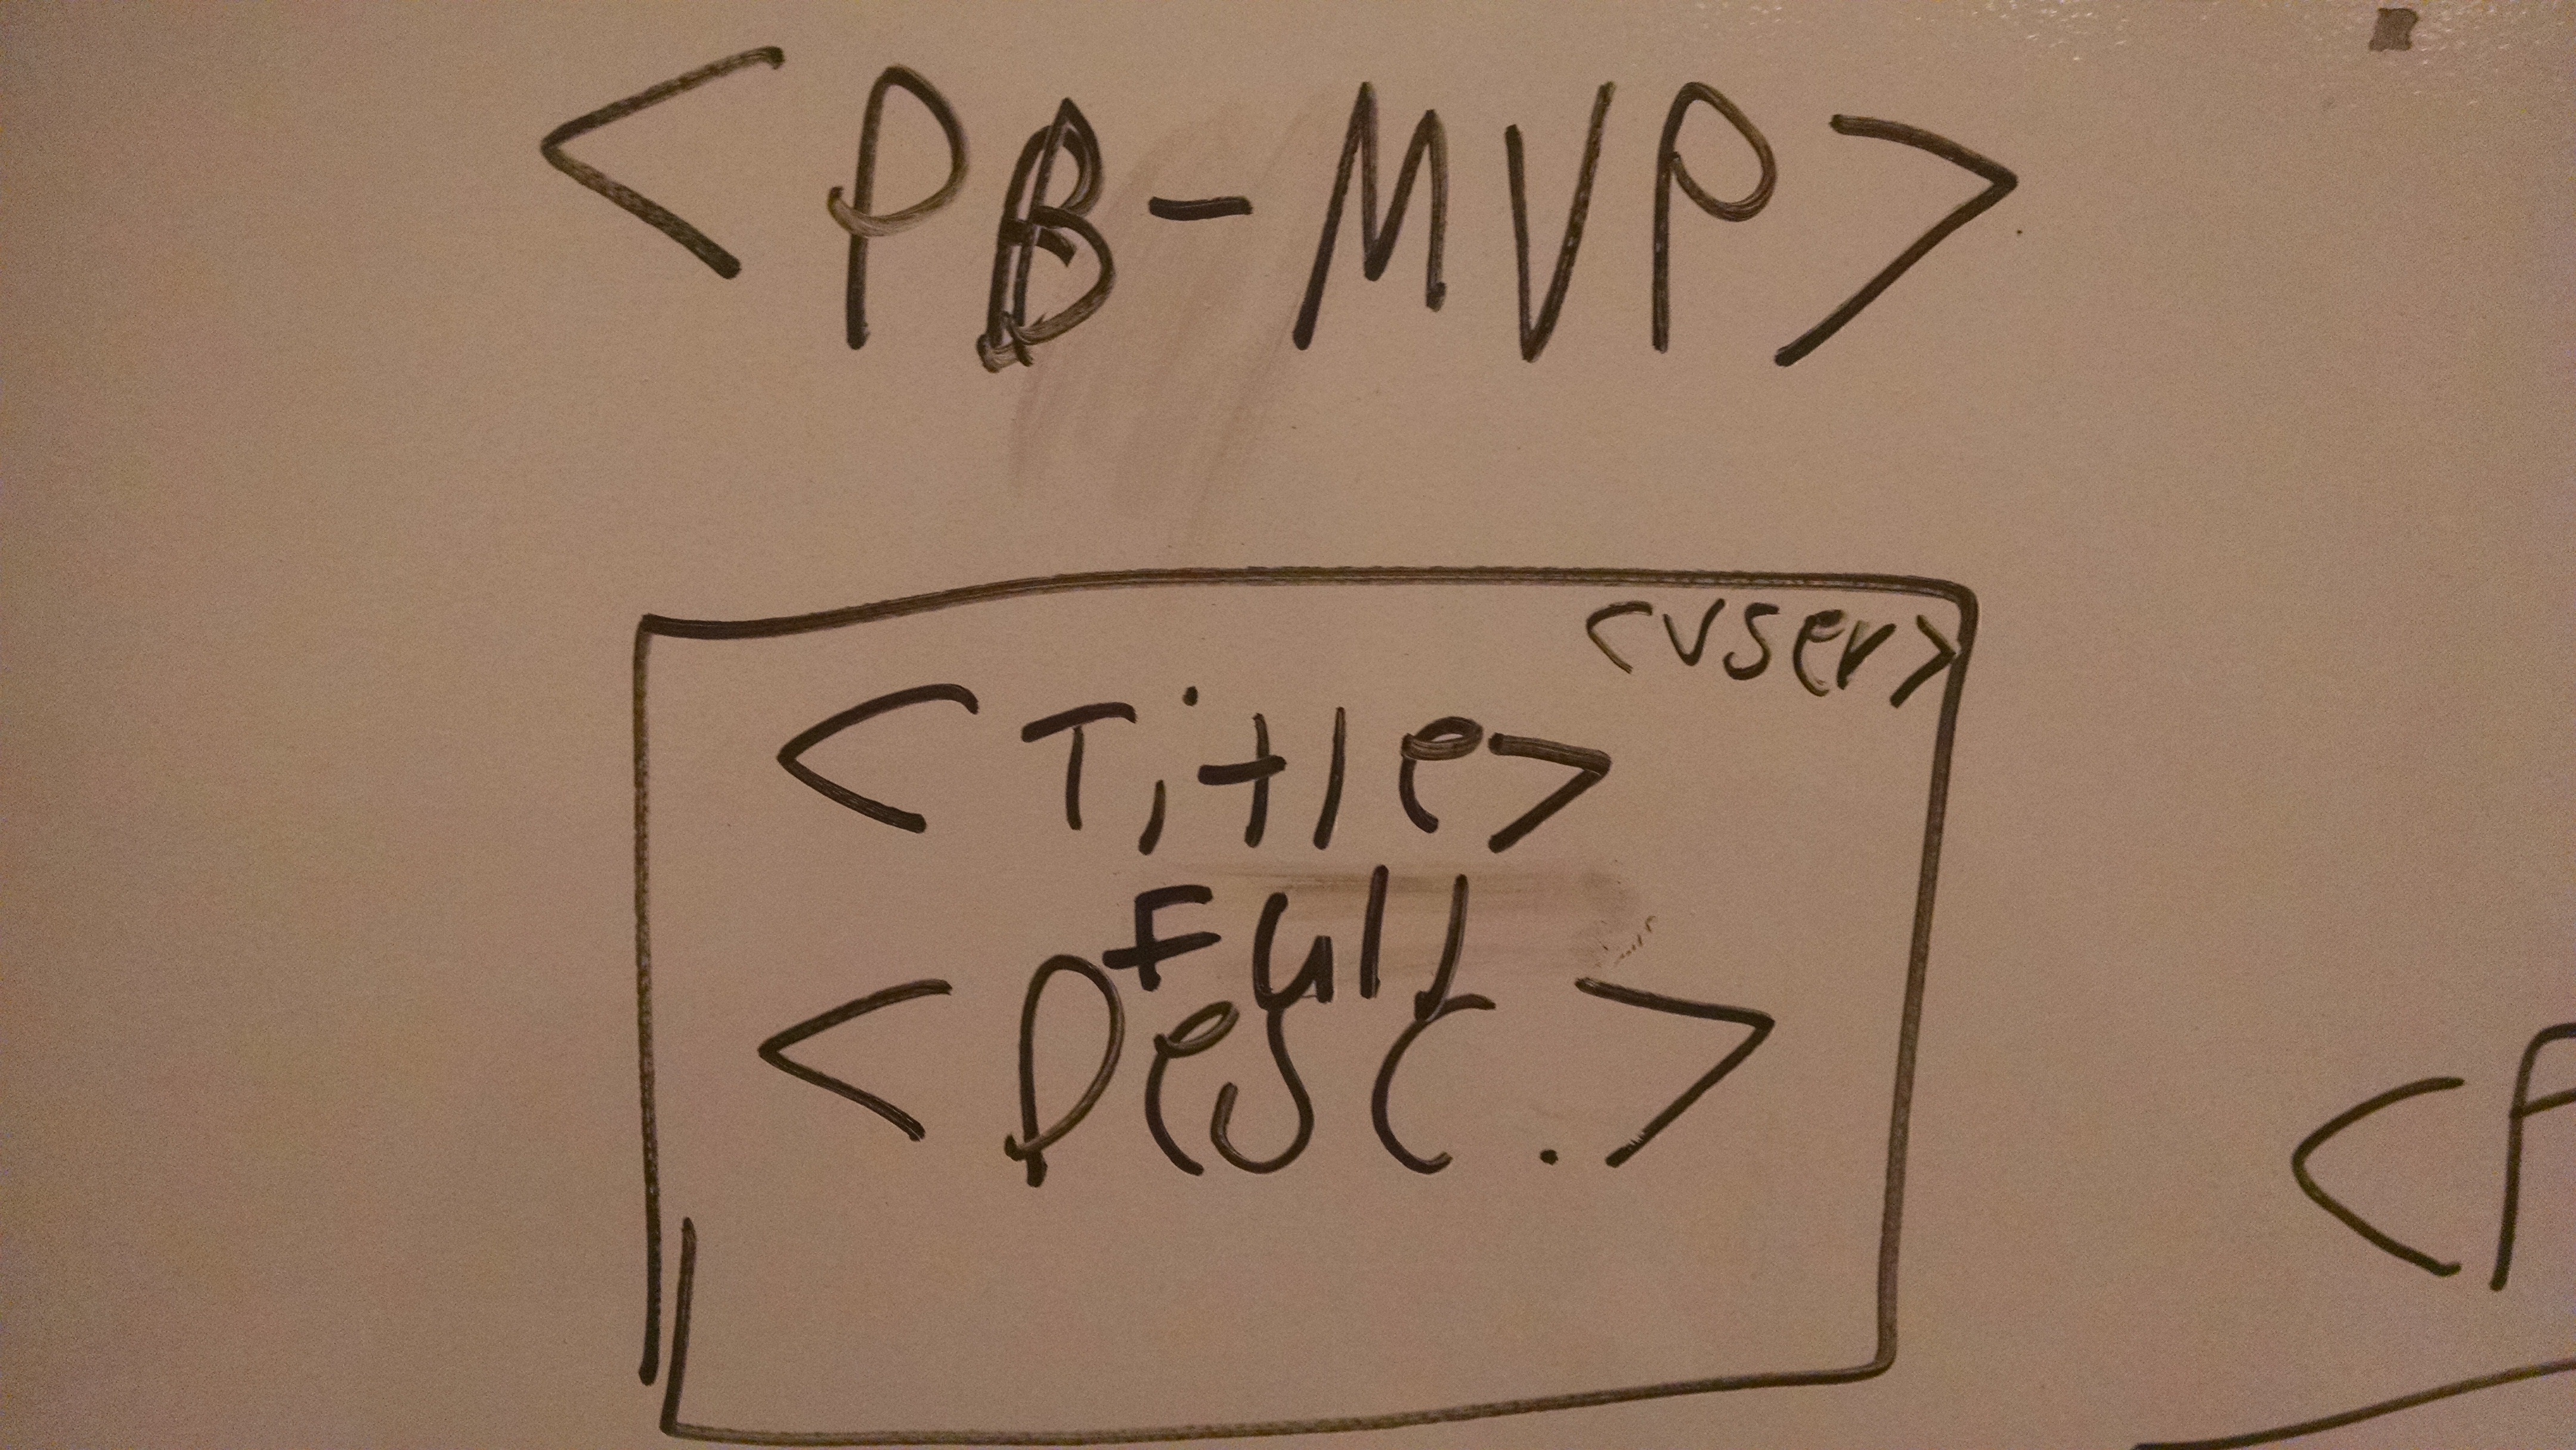 <PB-MVP>
<User>
<Title>
Full
<Desc.>